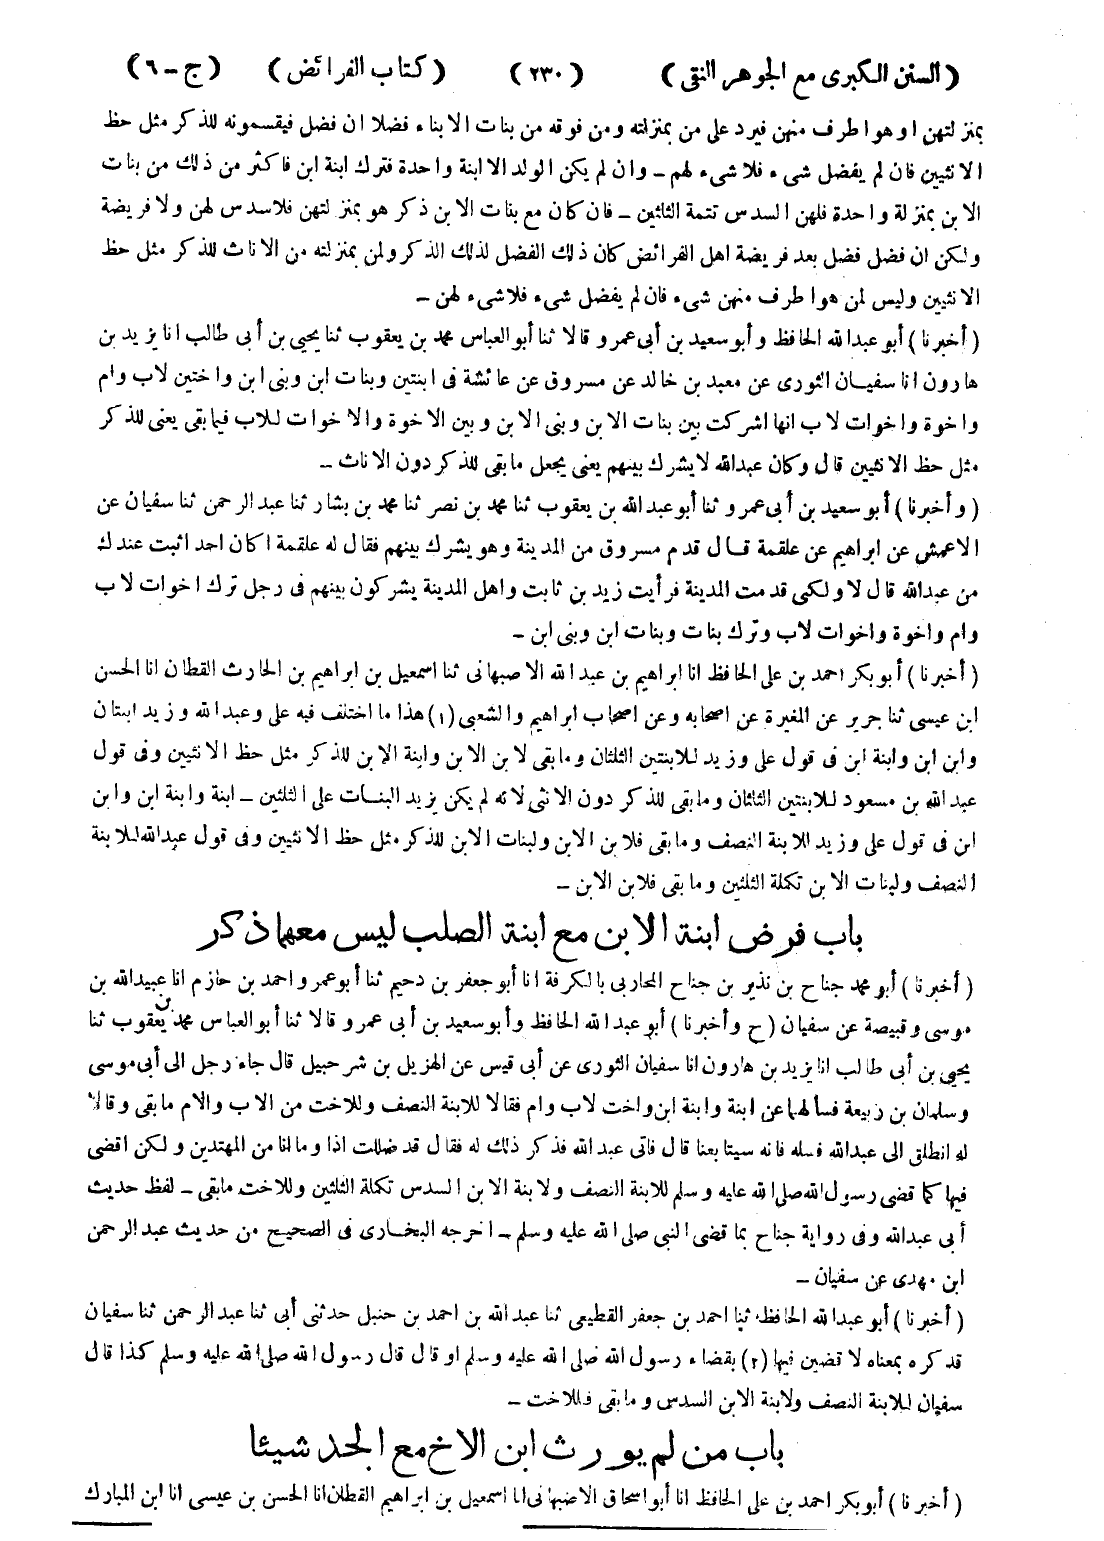 (السنن الكبرى مع الجوهر النقى) (٢٣٠) (كتاب الفرائض) (ج - ٦)
بمنزلتهن او هو اطرف منهن فيرد على من بمنزلته ومن فوقه من بنات الابناء فضلا ان فضل فيقسمونه للذكر مثل حظ
الانثيين فان لم يفضل شىء فلاشىء لهم - وان لم يكن الولد الا ابنة واحدة فترك ابنة ابن فاكثر من ذلك من بنات
الابن بمنزلة واحدة فلهن السدس تتمة الثلثين - فان كان مع بنات الابن ذكر هو بمنزلتهن فلاسدس لهن ولا فريضة
ولكن ان فضل فضل بعد فريضة اهل الفرائض كان ذلك الفضل لذلك الذكر ولمن بمنزلته من الاناث للذكر مثل حظ
الانثيين وليس لمن هو اطرف منهن شىء فان لم يفضل شىء فلاشىء لهن -
(أخبرنا) أبو عبد الله الحافظ وأبو سعيد بن أبى عمرو قالا ثنا أبو العباس محمد بن يعقوب ثنا يحيى بن أبى طالب انا يزيد بن
هارون انا سفيان الثورى عن معبد بن خالد عن مسروق عن عائشة فى ابنتين وبنات ابن وبنى ابن واختين لاب وام
واخوة واخوات لاب انها اشركت بين بنات الابن وبنى الابن وبين الاخوة والاخوات للاب فيما بقى يعنى للذكر
مثل حظ الانثيين قال وكان عبدالله لا يشرك بينهم يعنى يجعل ما بقى للذكر دون الاناث -
(وأخبرنا) أبو سعيد بن أبى عمرو ثنا أبو عبد الله بن يعقوب ثنا محمد بن نصر ثنا محمد بن بشار ثنا عبد الرحمن ثنا سفيان عن
الاعمش عن ابراهيم عن علقمة قال قدم مسروق من المدينة وهو يشرك بينهم فقال له علقمة اكان احد اثبت عندك
من عبدالله قال لا ولكنى قدمت المدينة فرأيت زيد بن ثابت واهل المدينة يشركون بينهم فى رجل ترك اخوات لاب
وام واخوة واخوات لاب وترك بنات وبنات ابن وبنى ابن -
(أخبرنا) أبو بكر احمد بن على الحافظ انا ابراهيم بن عبد الله الاصبهانى ثنا اسمعيل بن ابراهيم بن الحارث القطان انا الحسن
ابن عيسى ثنا جرير عن المغيرة عن اصحابه وعن اصحاب ابراهيم والشعبى (١) هذا ما اختلف فيه على وعبد الله وزيد ابنتان
وابن ابن وابنة ابن فى قول على وزيد للابنتين الثلثان وما بقى لابن الابن وابنة الابن للذكر مثل حظ الانثيين وفى قول
عبد الله بن مسعود للابنتين الثلثان وما بقى للذكر دون الانثى لانه لم يكن يزيد البنات على الثلثين - ابنة وابنة ابن وابن
ابن فى قول على وزيد للابنة النصف وما بقى فلابن الابن ولبنات الابن للذكر مثل حظ الانثيين وفى قول عبدالله للابنة
النصف ولبنات الابن تكملة الثلثين وما بقى فلابن الابن -
باب فرض ابنة الابن مع ابنة الصلب ليس معها ذكر
(أخبرنا) أبو محمد جناح بن نذير بن جناح المحاربى بالكوفة انا أبو جعفر بن دحيم ثنا أبو عمرو احمد بن حازم انا عبيدالله بن
موسى وقبيصة عن سفيان (ح وأخبرنا) أبو عبد الله الحافظ وأبو سعيد بن أبى عمرو قالا ثنا أبو العباس محمد بن يعقوب ثنا
يحيى بن أبى طالب انا يزيد بن هارون انا سفيان الثورى عن أبى قيس عن الهزيل بن شرحبيل قال جاء رجل الى أبى موسى
وسلمان بن ربيعة فسألهما عن ابنة وابنة ابن واخت لاب وام فقالا للابنة النصف وللاخت من الاب والام ما بقى وقالا
له انطلق الى عبدالله فسله فانه سيتابعنا قال فاتى عبد الله فذكر ذلك له فقال قد ضللت اذا وما انا من المهتدين ولكن اقضى
فيها كما قضى رسول الله صلى الله عليه وسلم للابنة النصف ولابنة الابن السدس تكملة الثلثين وللاخت مابقى - لفظ حديث
أبى عبدالله وفى رواية جناح بما قضى النبى صلى الله عليه وسلم - اخرجه البخارى فى الصحيح من حديث عبد الرحمن
ابن مهدى عن سفيان -
(أخبرنا) أبو عبد الله الحافظ ثنا احمد بن جعفر القطيعى ثنا عبد الله بن احمد بن حنبل حدثنى أبى ثنا عبد الرحمن ثنا سفيان
فذكره بمعناه لاقضين فيها (٢) بقضاء رسول الله صلى الله عليه وسلم او قال قال رسول الله صلى الله عليه وسلم كذا قال
سفيان للابنة النصف ولابنة الابن السدس وما بقى فللاخت -
باب من لم يورث ابن الاخ مع الجد شيئا
(أخبرنا) أبو بكر احمد بن على الحافظ انا أبو اسحاق الاصبهانى انا اسمعيل بن ابراهيم القطان انا الحسن بن عيسى انا ابن المبارك